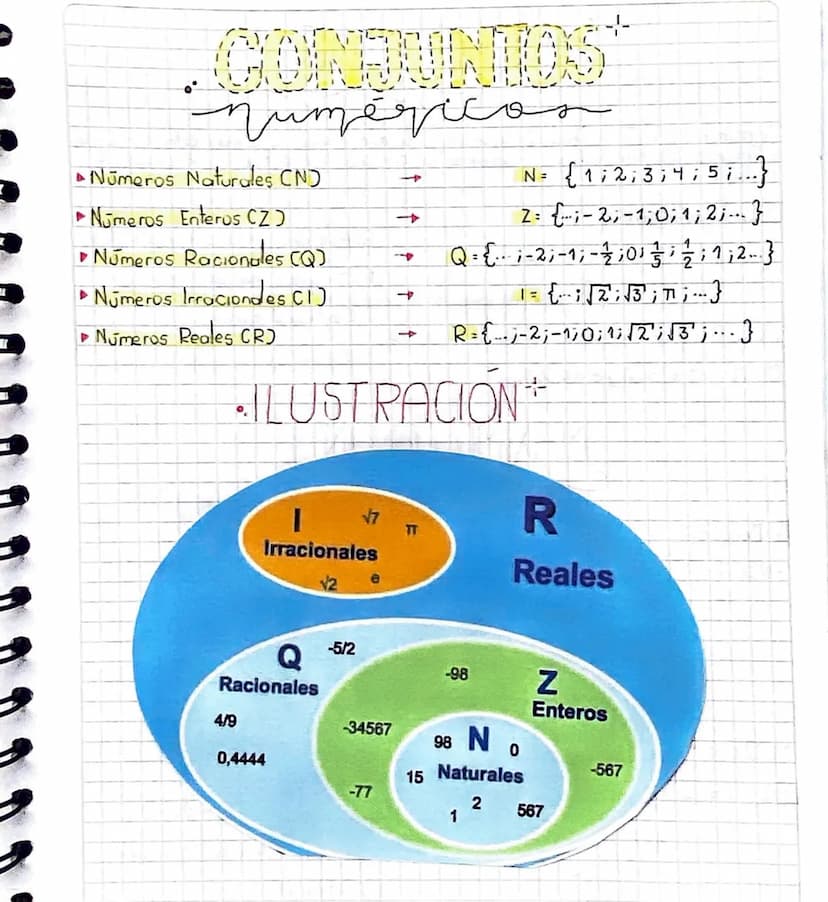 CONJUNTOS
numéricos
Números Naturales (N) → N= {1;2;3;4;5;...}
Números Enteros (Z) → Z= {...;-2;-1;0;1;2;...}
Números Racionales (Q) → Q={...;-2;-1;-1/2;0;1/5;1/2;1;2...}
Números Irracionales (I) → I= {...;√2;√3;π;...}
Números Reales (R) → R={...;-2;-1;0;1;√2;√3;...}
ILUSTRACIÓN
I √7 π
Irracionales
√2 e
R
Reales
Q -5/2
Racionales
4/9
0,4444
-98 Z
Enteros
-34567
-77
-567
98 N 0
15 Naturales
1 2 567